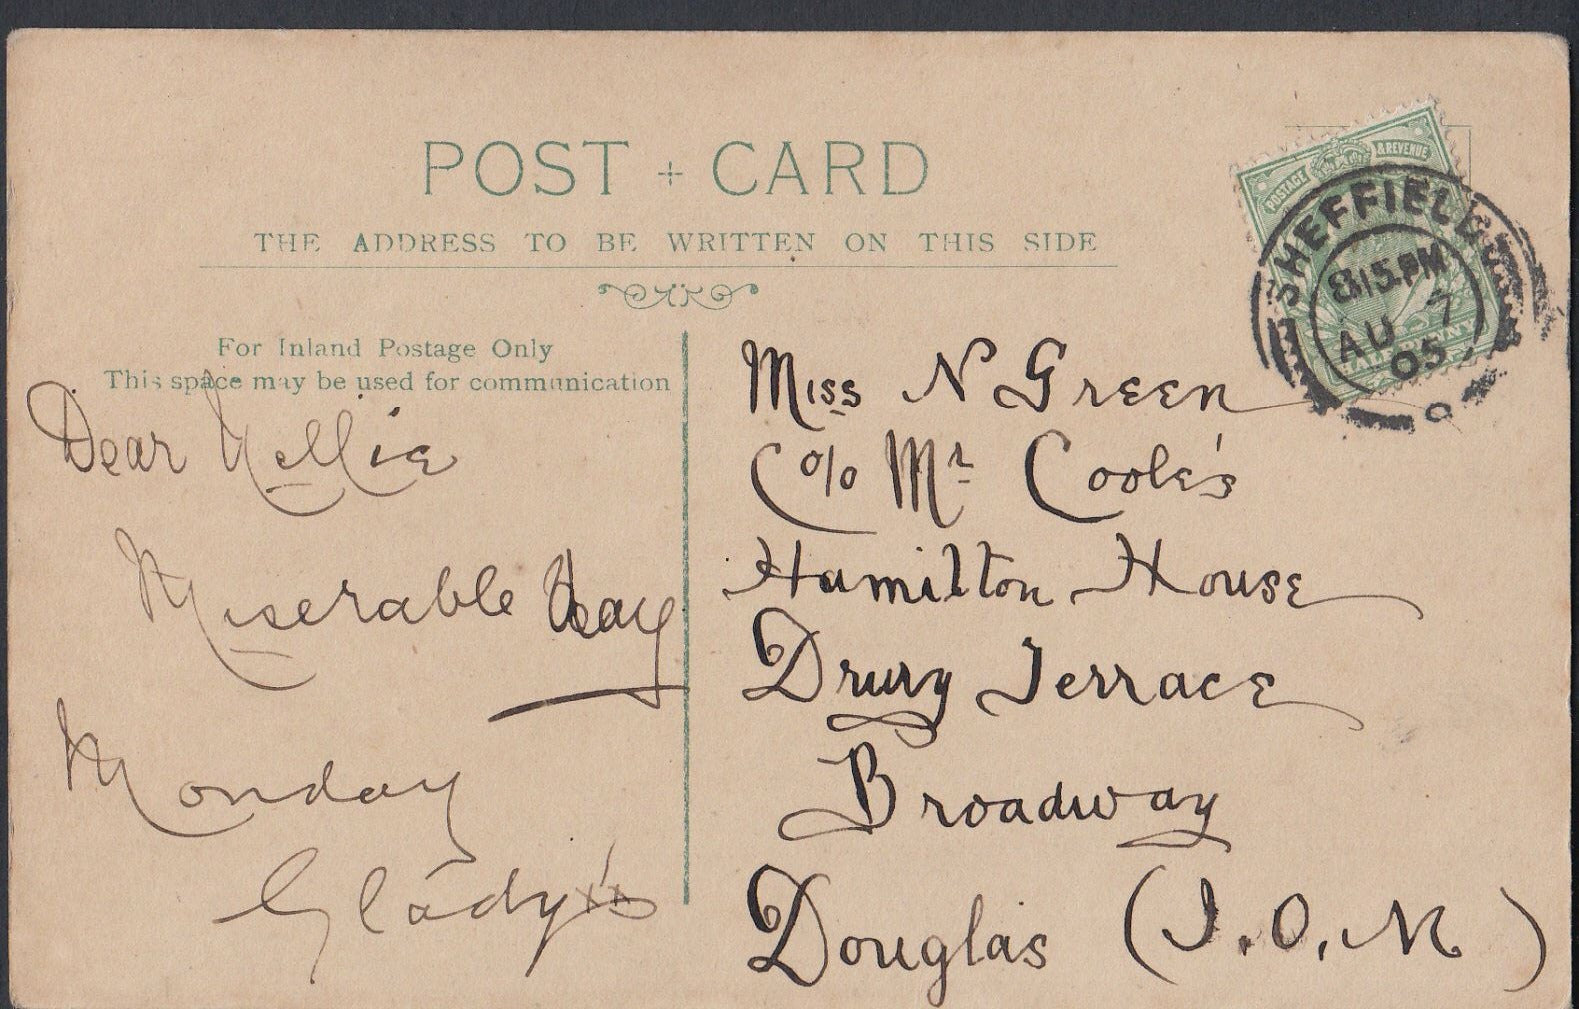 POST + CARD
THE ADDRESS TO BE WRITTEN ON THIS SIDE
For Inland Postage Only
This space may be used for communication
Dear Nellie
Miserable
Monday
Gladys
POSTAGE & REVENUE
HALFPENNY
SHEFFIELD
8.15.PM
AU 7
05
Miss N Green
C/o Mr Coole's
Hamilton House
Drury Terrace
Broadway
Douglas (I.O.M)